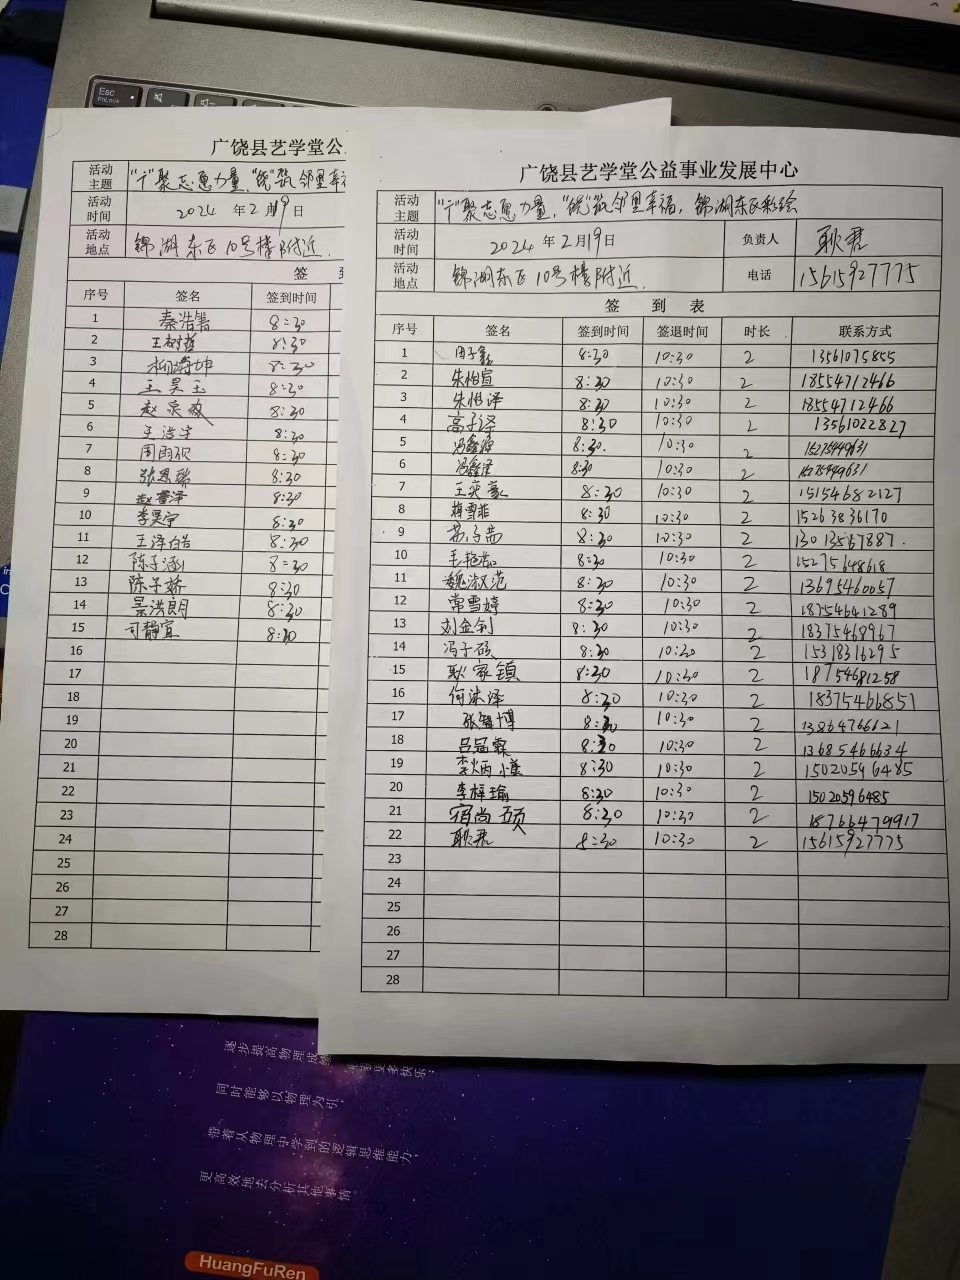 Esc
FnLock
广饶县艺学堂公
活动主题 "广"聚志愿力量,"饶"筑邻里幸
活动时间 2024 年 2 月 19 日
活动地点 锦湖东区10号楼附近.
签 到
序号 签名 签到时间
1 秦浩箐 8:30
2 王树哲 8:30
3 柳海坤 8:30
4 王昊玉 8:30
5 赵泉薇 8:30
6 王浩宇 8:30
7 周雨欣 8:30
8 张恩瑞 8:30
9 赵睿泽 8:30
10 李昊宇 8:30
11 王泽皓 8:30
12 陈子涵 8:30
13 陈子娇 8:30
14 景洪朗 8:30
15 司静宜 8:30
16
17
18
19
20
21
22
23
24
25
26
27
28
广饶县艺学堂公益事业发展中心
活动主题 "广"聚志愿力量,"饶"筑邻里幸福,锦湖东区彩绘
活动时间 2024 年 2 月 19 日 负责人 耿君
活动地点 锦湖东区10号楼附近. 电话 15615927775
签 到 表
序号 签名 签到时间 签退时间 时长 联系方式
1 8:30 10:30 2 13561075855
2 朱怡宣 8:30 10:30 2 18554712466
3 朱怡泽 8:30 10:30 2 18554712466
4 高子泽 8:30 10:30 2 13561022827
5 冯鑫源 8:30. 10:30 2 15275449631
6 冯鑫泽 8:30 10:30 2 15275449631
7 王奕豪 8:30 10:30 2 15154682127
8 韩雪菲 8:30 10:30 2 15263836170
9 8:30 10:30 2 13013567887.
10 毛艳茹 8:30 10:30 2 15275648618
11 魏淑范 8:30 10:30 2 13695460057
12 常雪婷 8:30 10:30 2 18754641289
13 刘金钊 8:30 10:30 2 18375468967
14 冯子硕 8:30 10:30 2 15318316295
15 耿家镇 8:30 10:30 2 18754681258
16 何沫泽 8:30 10:30 2 18375466857
17 张智博 8:30 10:30 2 13864766621
18 吕冠霖 8:30 10:30 2 13685466634
19 李炳慬 8:30 10:30 2 15020596485
20 李梓瑜 8:30 10:30 2 15020596485
21 宿尚硕 8:30 10:30 2 18766479917
22 耿君 8:30 10:30 2 15615927775
23
24
25
26
27
28
逐步提高物理成绩 更多快乐;
同时能够以物理为引,
带着从物理中学到的逻辑思维能力,
更高效地去分析其他事情。
HuangFuRen